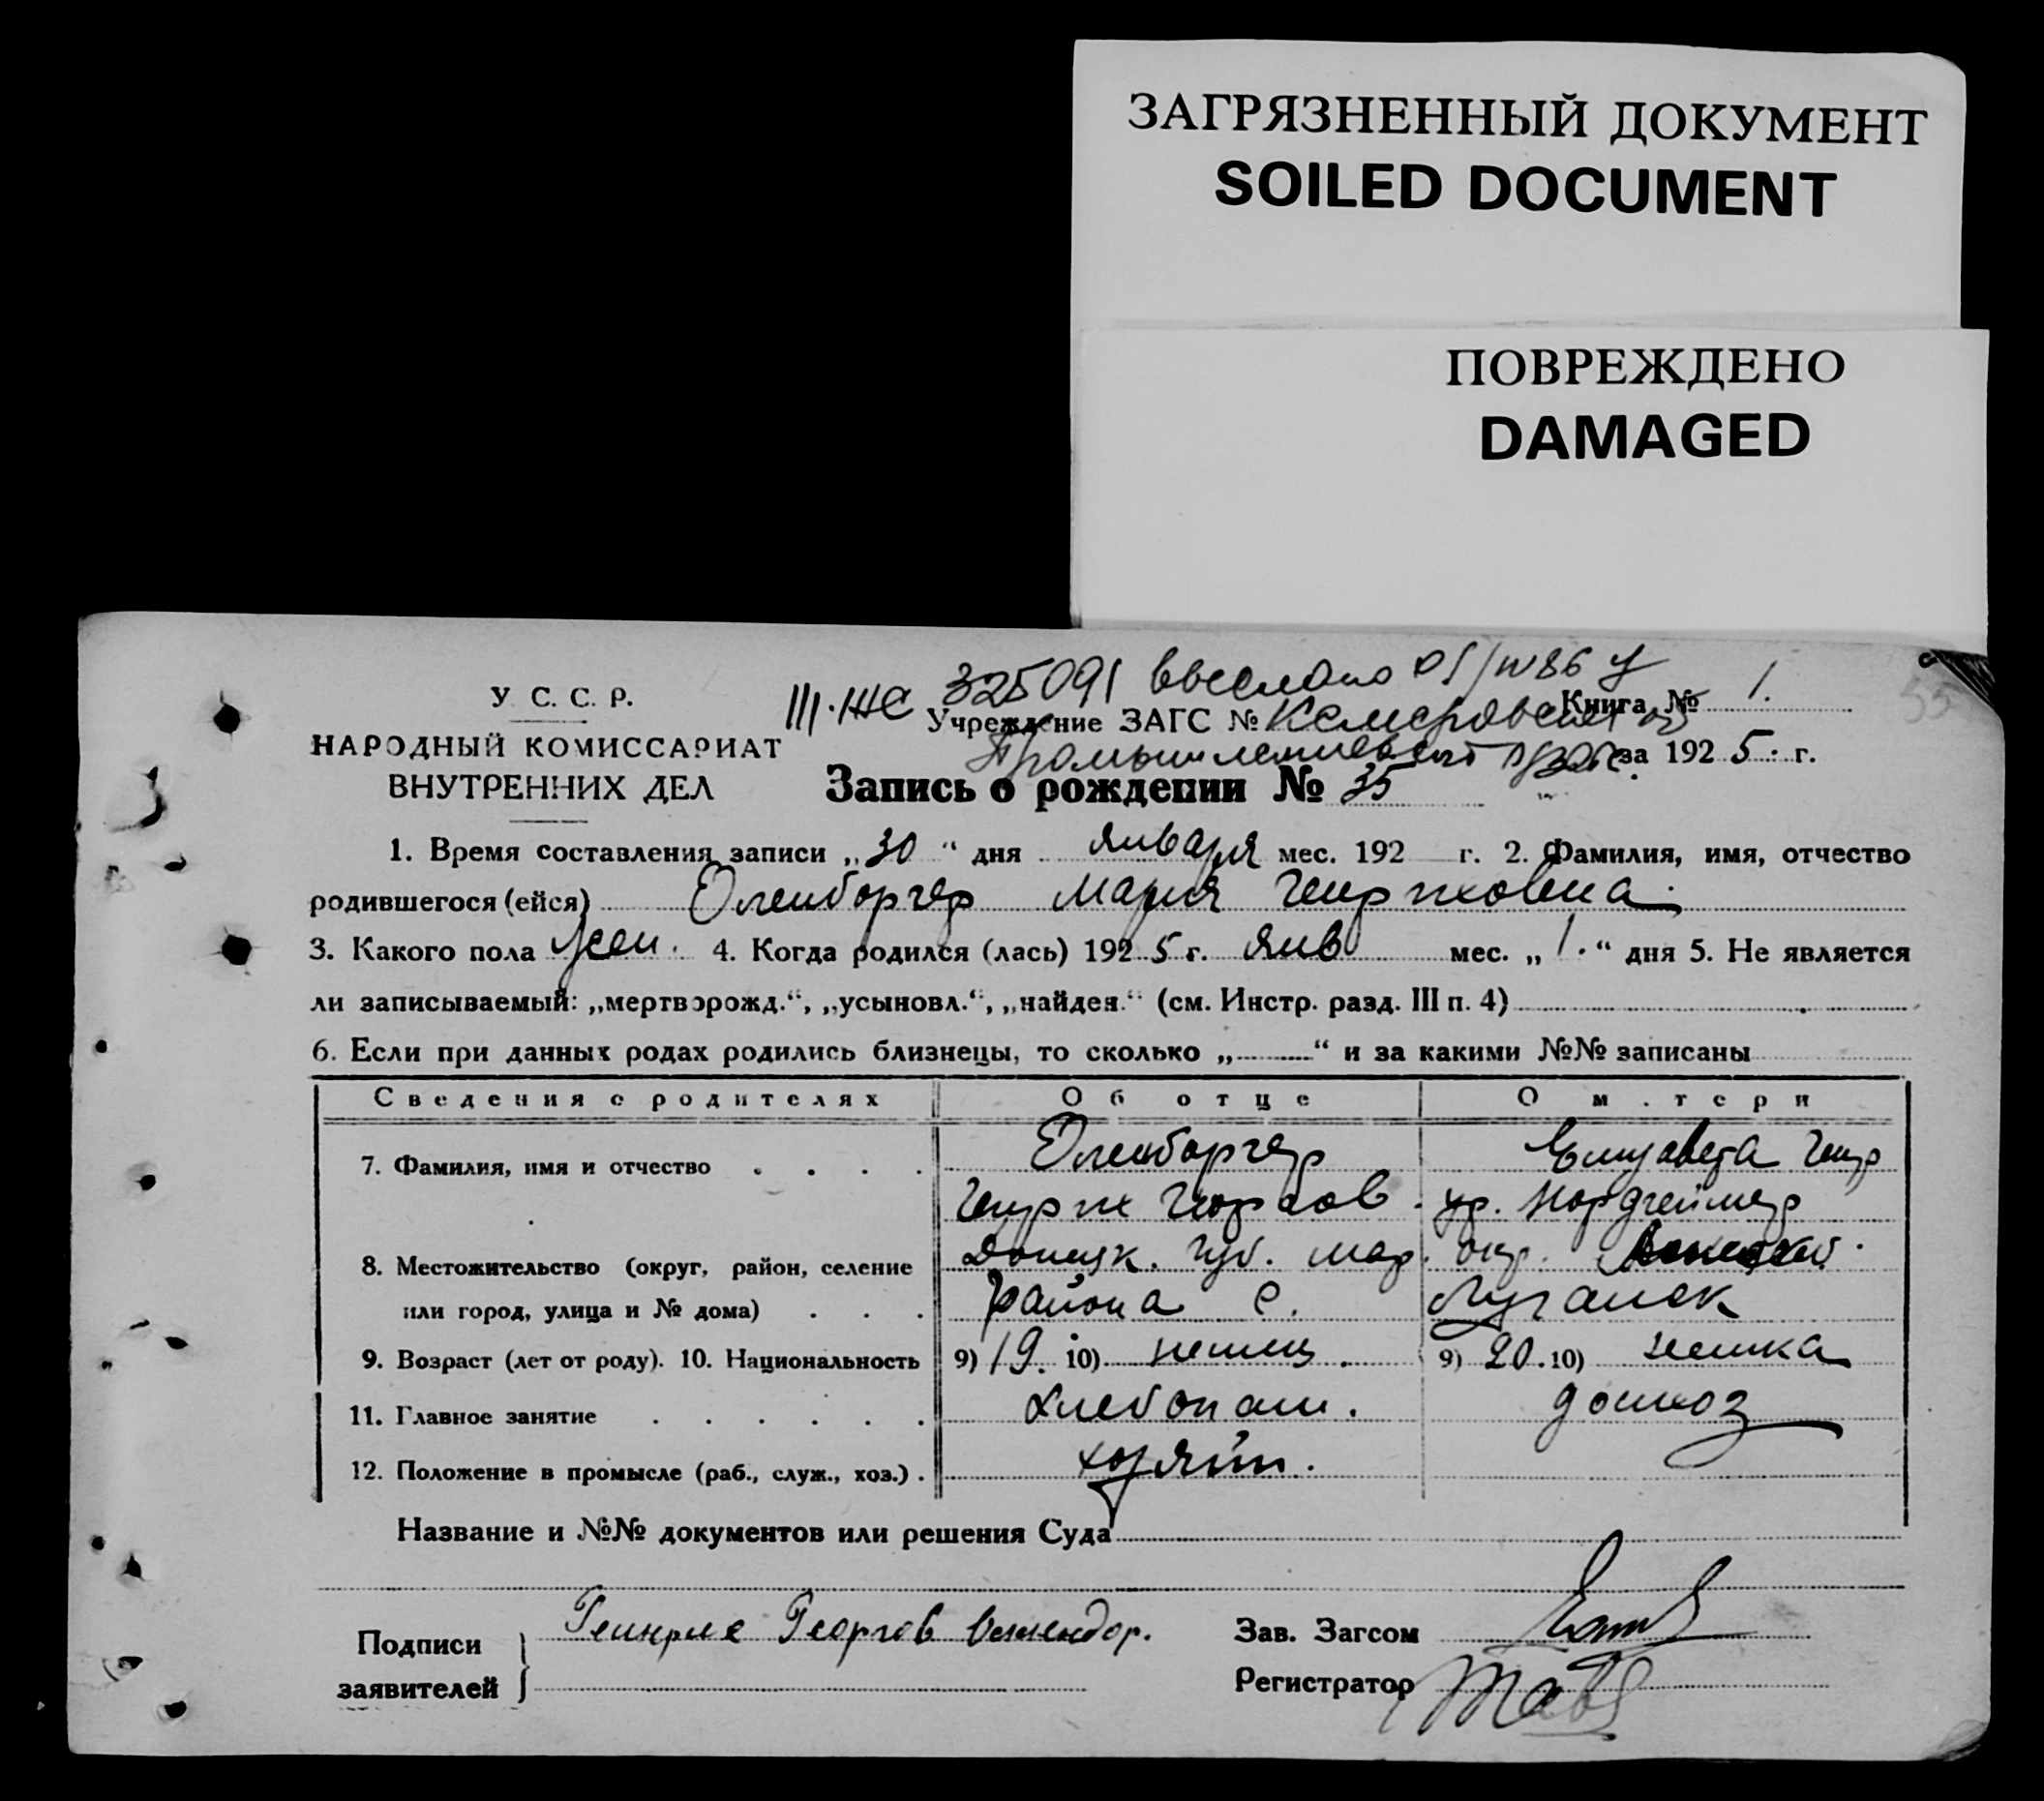 ЗАГРЯЗНЕННЫЙ ДОКУМЕНТ
SOILED DOCUMENT
ПОВРЕЖДЕНО
DAMAGED
325091
У С. С. Р.
Книга № 1.
Учреждение ЗАГС №
НАРОДНЫЙ КОМИССАРИАТ
ВНУТРЕННИХ ДЕЛ
за 192 5 г.
Запись о рождении № 35
1. Время составления записи „30“ дня января мес. 192 г. 2. Фамилия, имя, отчество
родившегося (ейся) Оленборгер Мария
3. Какого пола жен. 4. Когда родился (лась) 192 5 г. янв мес. „1.“ дня 5. Не является
ли записываемый: „мертворожд.“, „усыновл.“, „найден.“ (см. Инстр. разд. III п. 4)
6. Если при данных родах родились близнецы, то сколько „ “ и за какими №№ записаны
Сведения о родителях Об отце О матери
7. Фамилия, имя и отчество Оленборгер Елизавета
8. Местожительство (округ, район, селение Донецк. губ. мар. окр.
или город, улица и № дома) района с. Луганск
9. Возраст (лет от роду). 10. Национальность 9) 19. 10) немец 9) 20. 10) немка
11. Главное занятие хлебопаш. домхоз
12. Положение в промысле (раб., служ., хоз.) хозяин.
Название и №№ документов или решения Суда
Подписи
заявителей
Георгов
Зав. Загсом
Регистратор